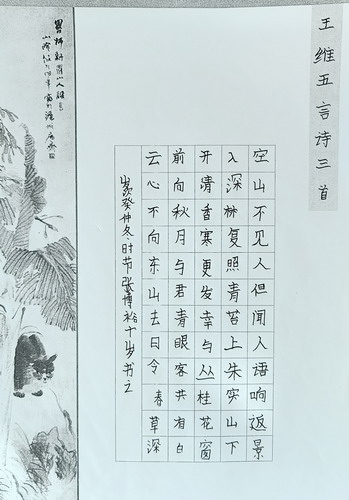 王维五言诗三首
空山不见人但闻人语响返景
入深林复照青苔上朱实山下
开清香寒更发幸与丛桂花窗
前向秋月与君青眼客共有白
云心不向东山去日令春草深
癸仲冬时节张博裕十岁书之